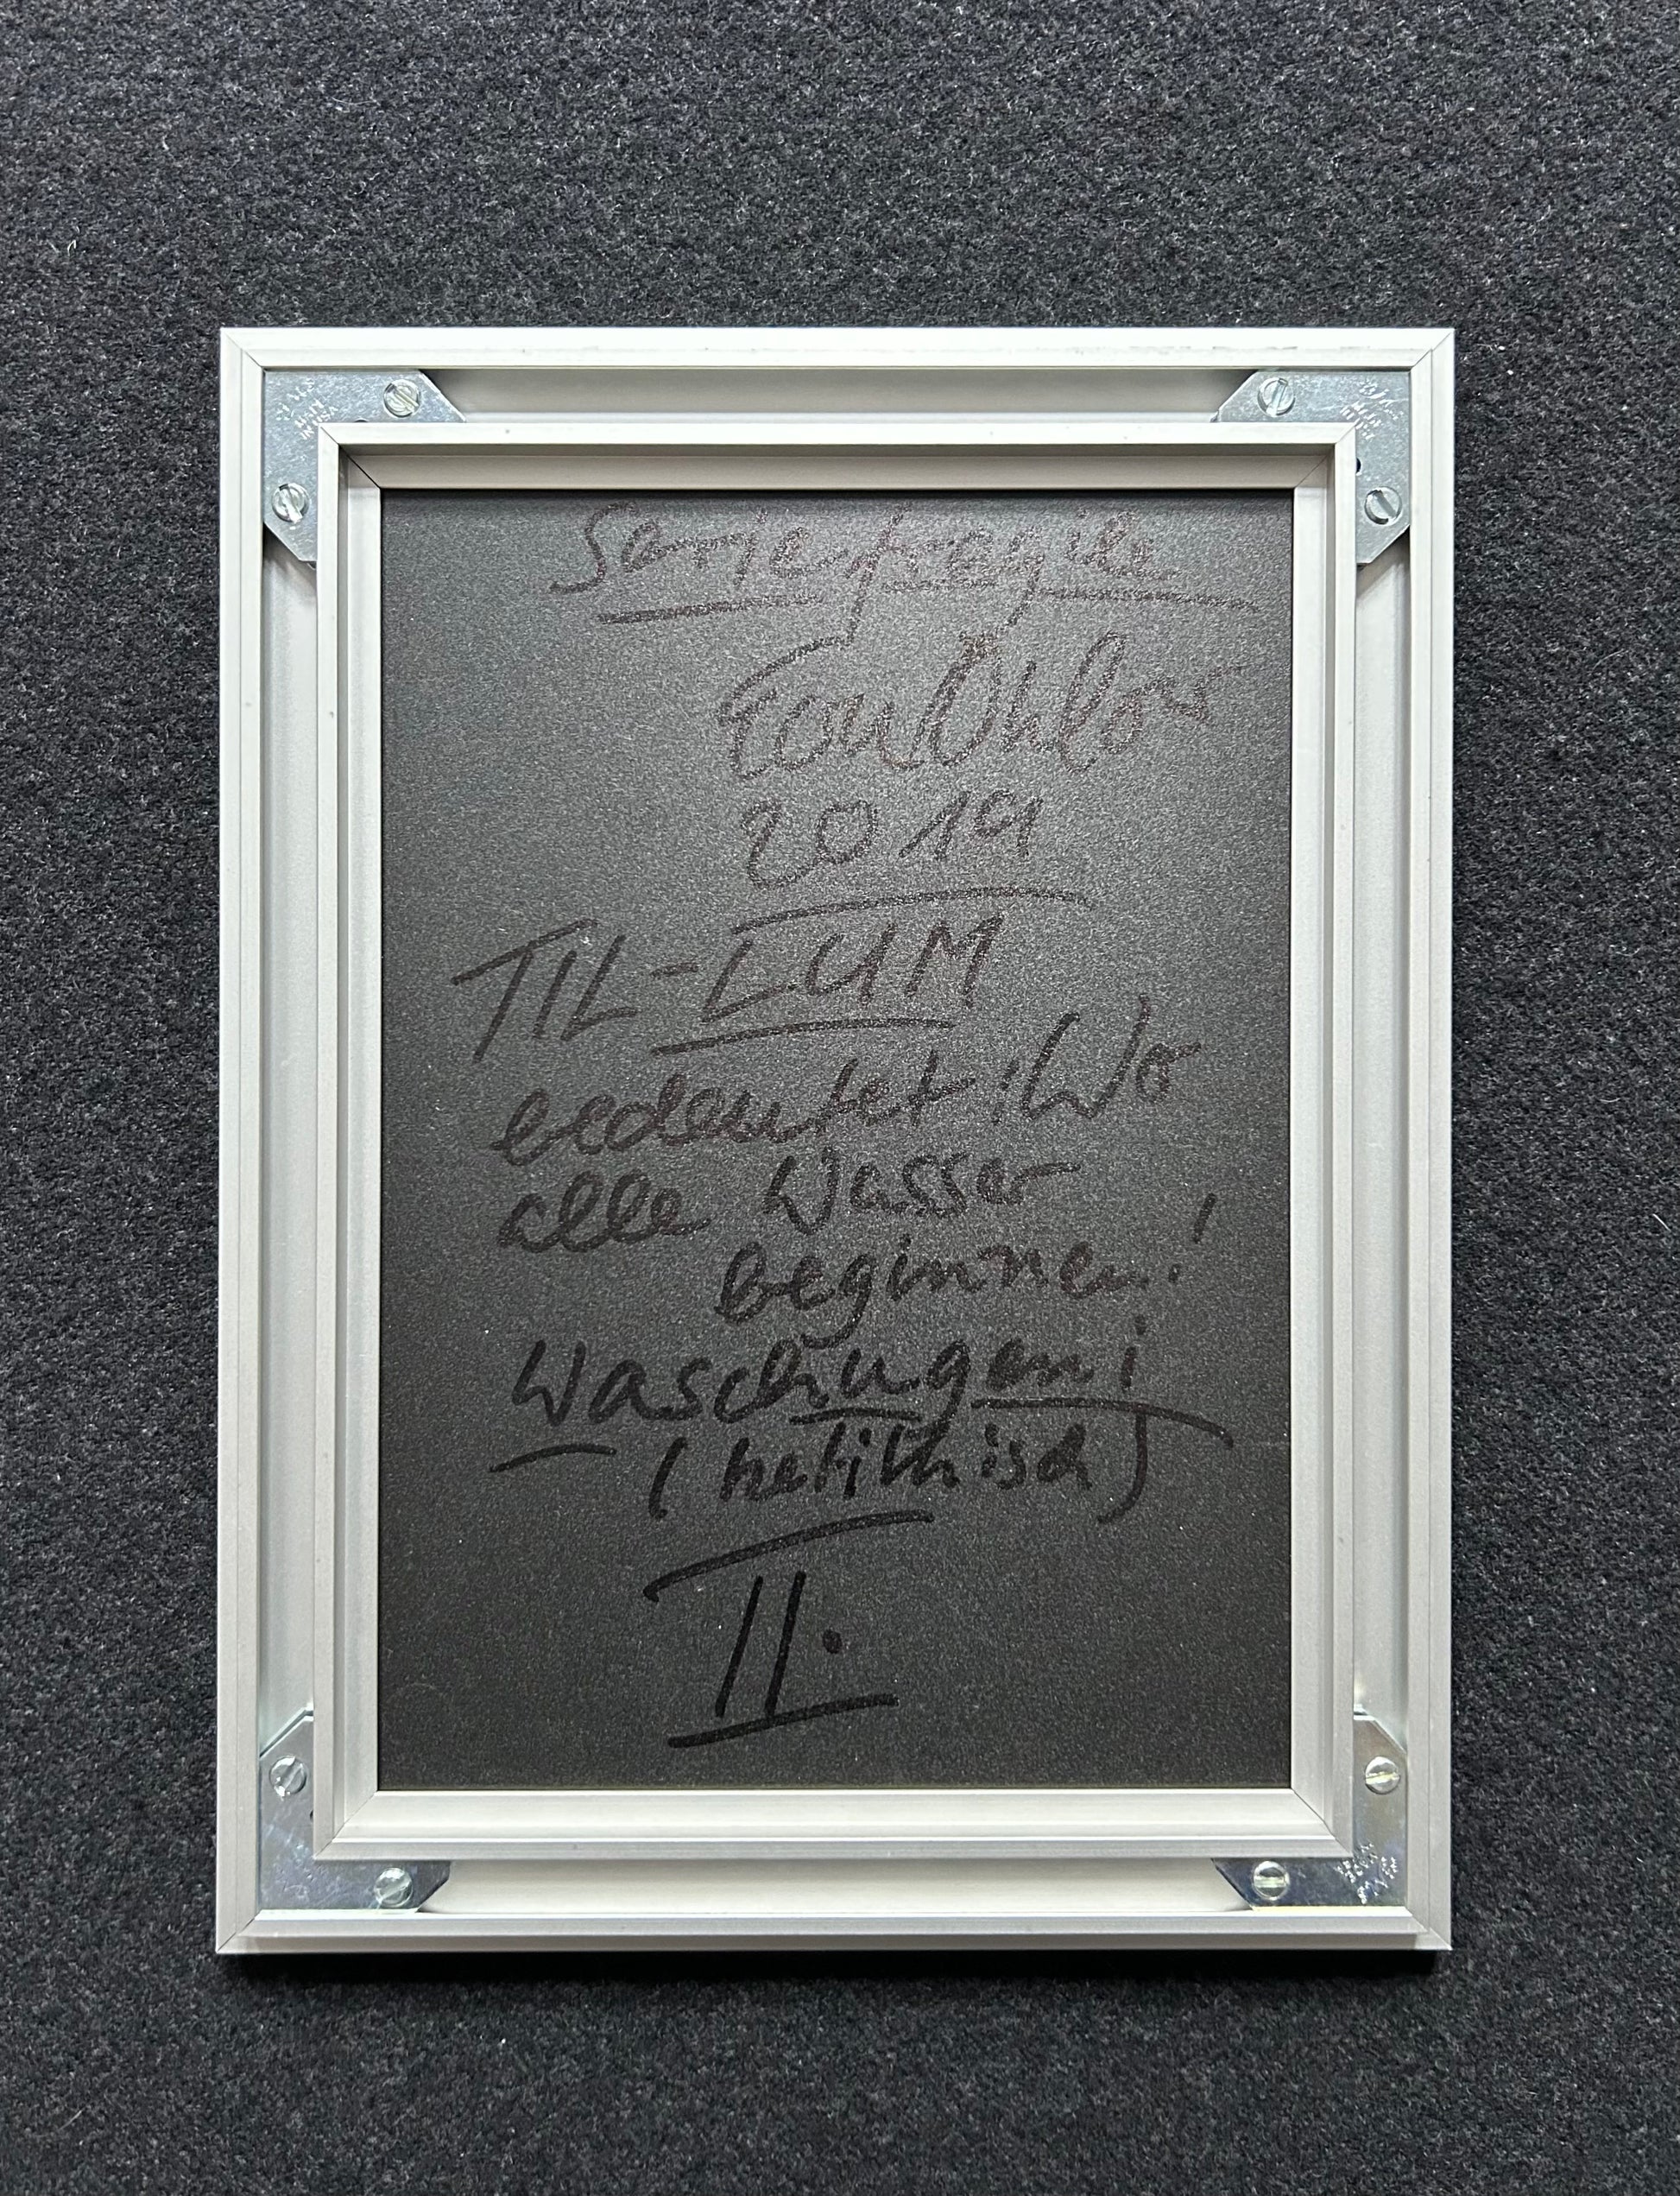 Serie fragile
2019
TIL-LUM
bedeutet: Wo
alle Wasser
beginnen!
Waschugeni
(hetithisch)
II.